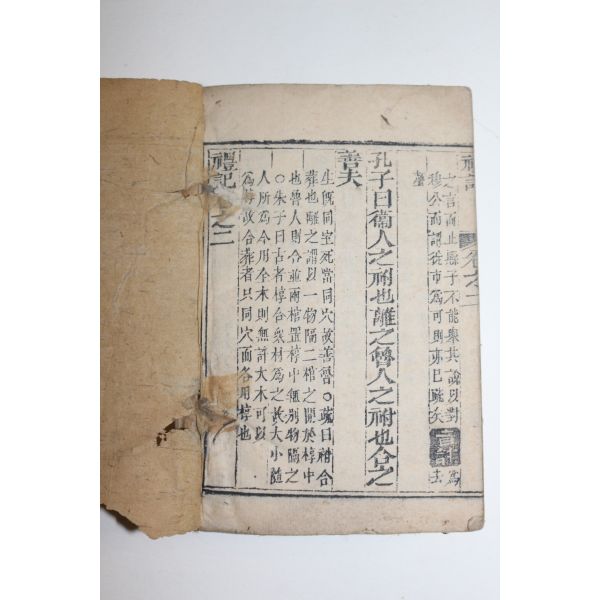 禮記 卷之二
之言而止縣子不能舉其說以對
穆公而謂徙市為可則亦已疏矣
為
去
聲
孔子曰衛人之祔也離之魯人之祔也合之
善夫
生既同室死當同穴故善魯○疏曰祔合
葬也離之謂以一物隔二棺之間於椁中
也魯人則合並兩棺置椁中無別物隔之
○朱子曰古者椁合衆材為之故大小隨
人所為今用全木則無許大木可以
為椁故合葬者只同穴而各用椁也
禮記 之二